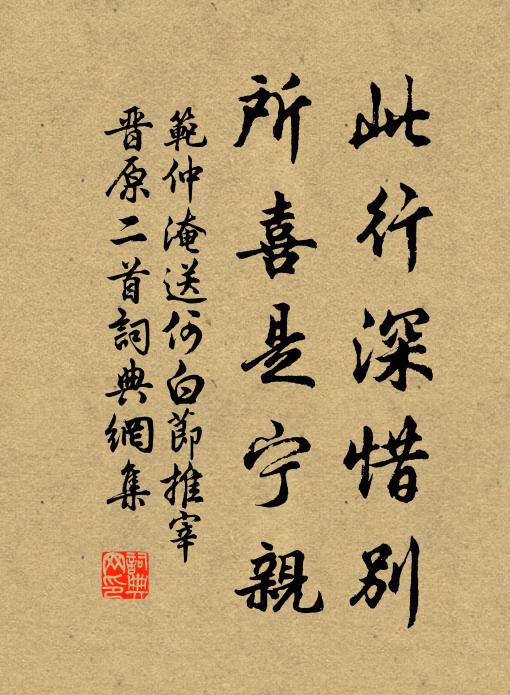 此行深惜别
所喜是宁親
範仲淹送何白節推宰
晉原二首詞典網集
詞典
网印